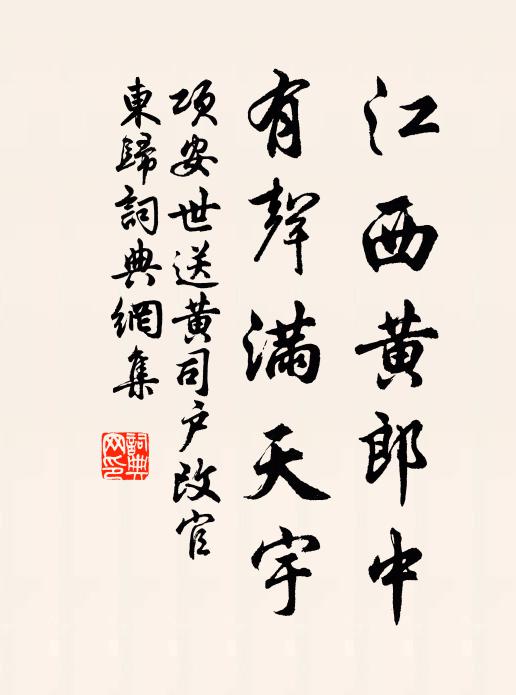 江西黄郎中
有聲滿天宇
項安世送黄司戶改官
東歸詞典網集
詞典网印